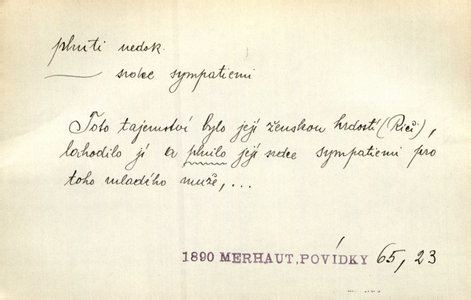 plniti nedok.
srdce sympatiemi
Toto tajemství bylo její ženskou hrdostí (Riči),
lahodilo jí a plnilo její srdce sympatiemi pro
toho mladého muže, ...
1890 MERHAUT, POVÍDKY 65, 23